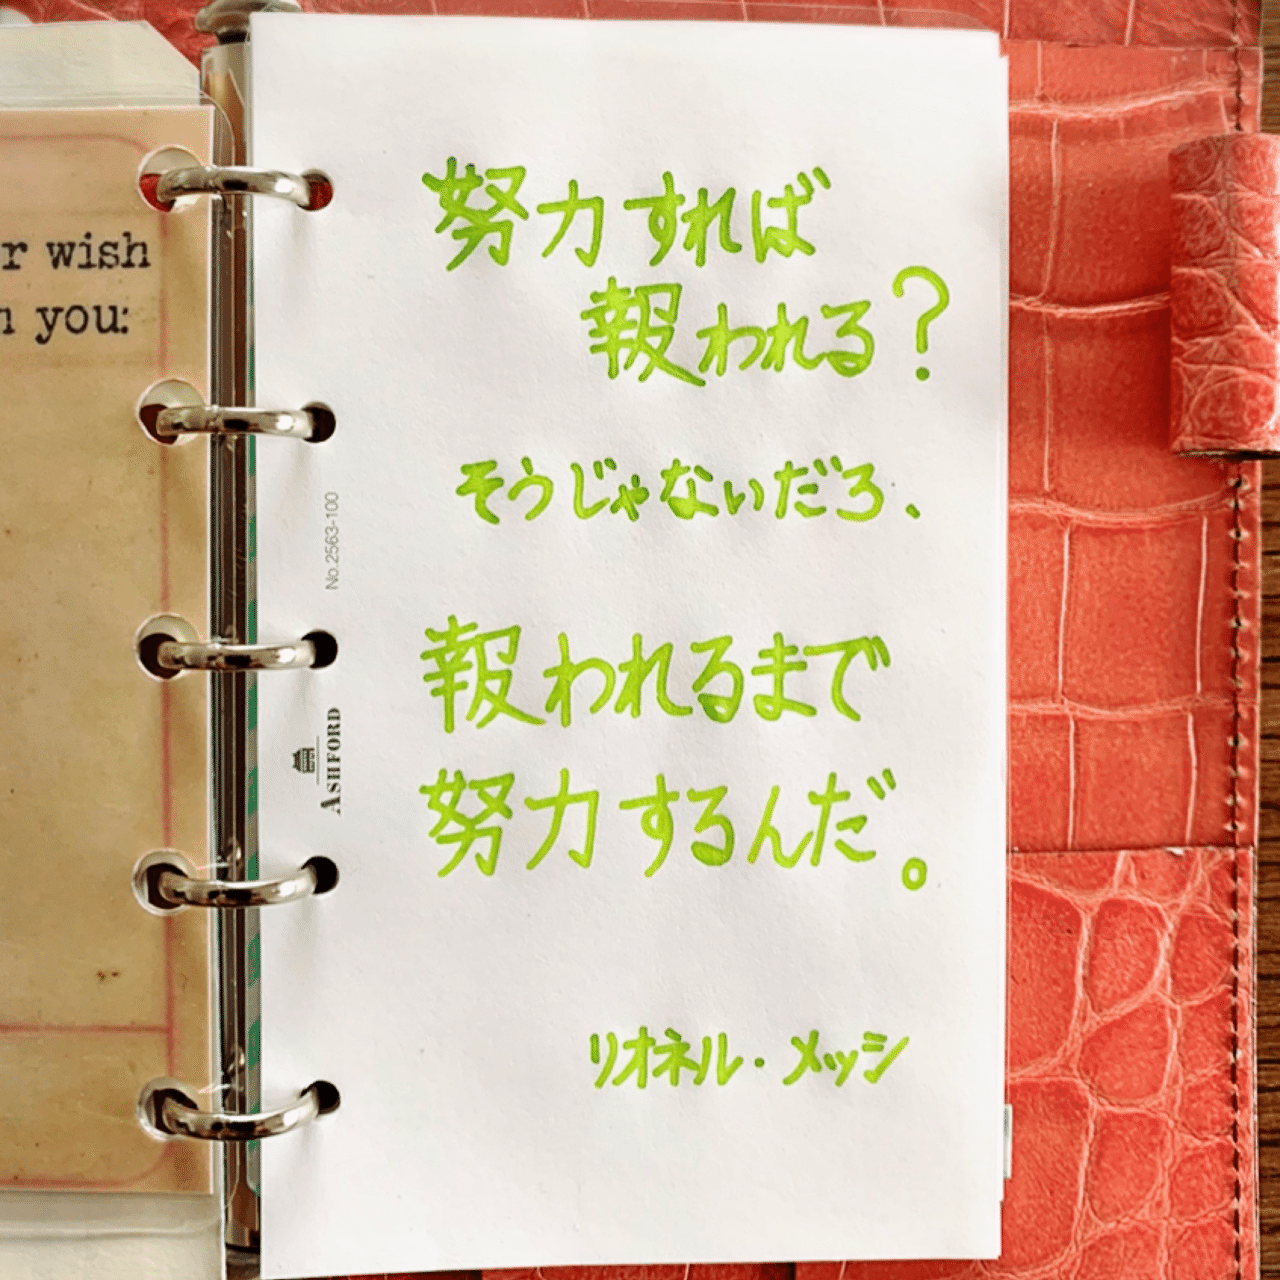 r wish
n you:
努力すれば
報われる？
そうじゃないだろ、
報われるまで
努力するんだ。
リオネル・メッシ
No.2563-100
ASHFORD